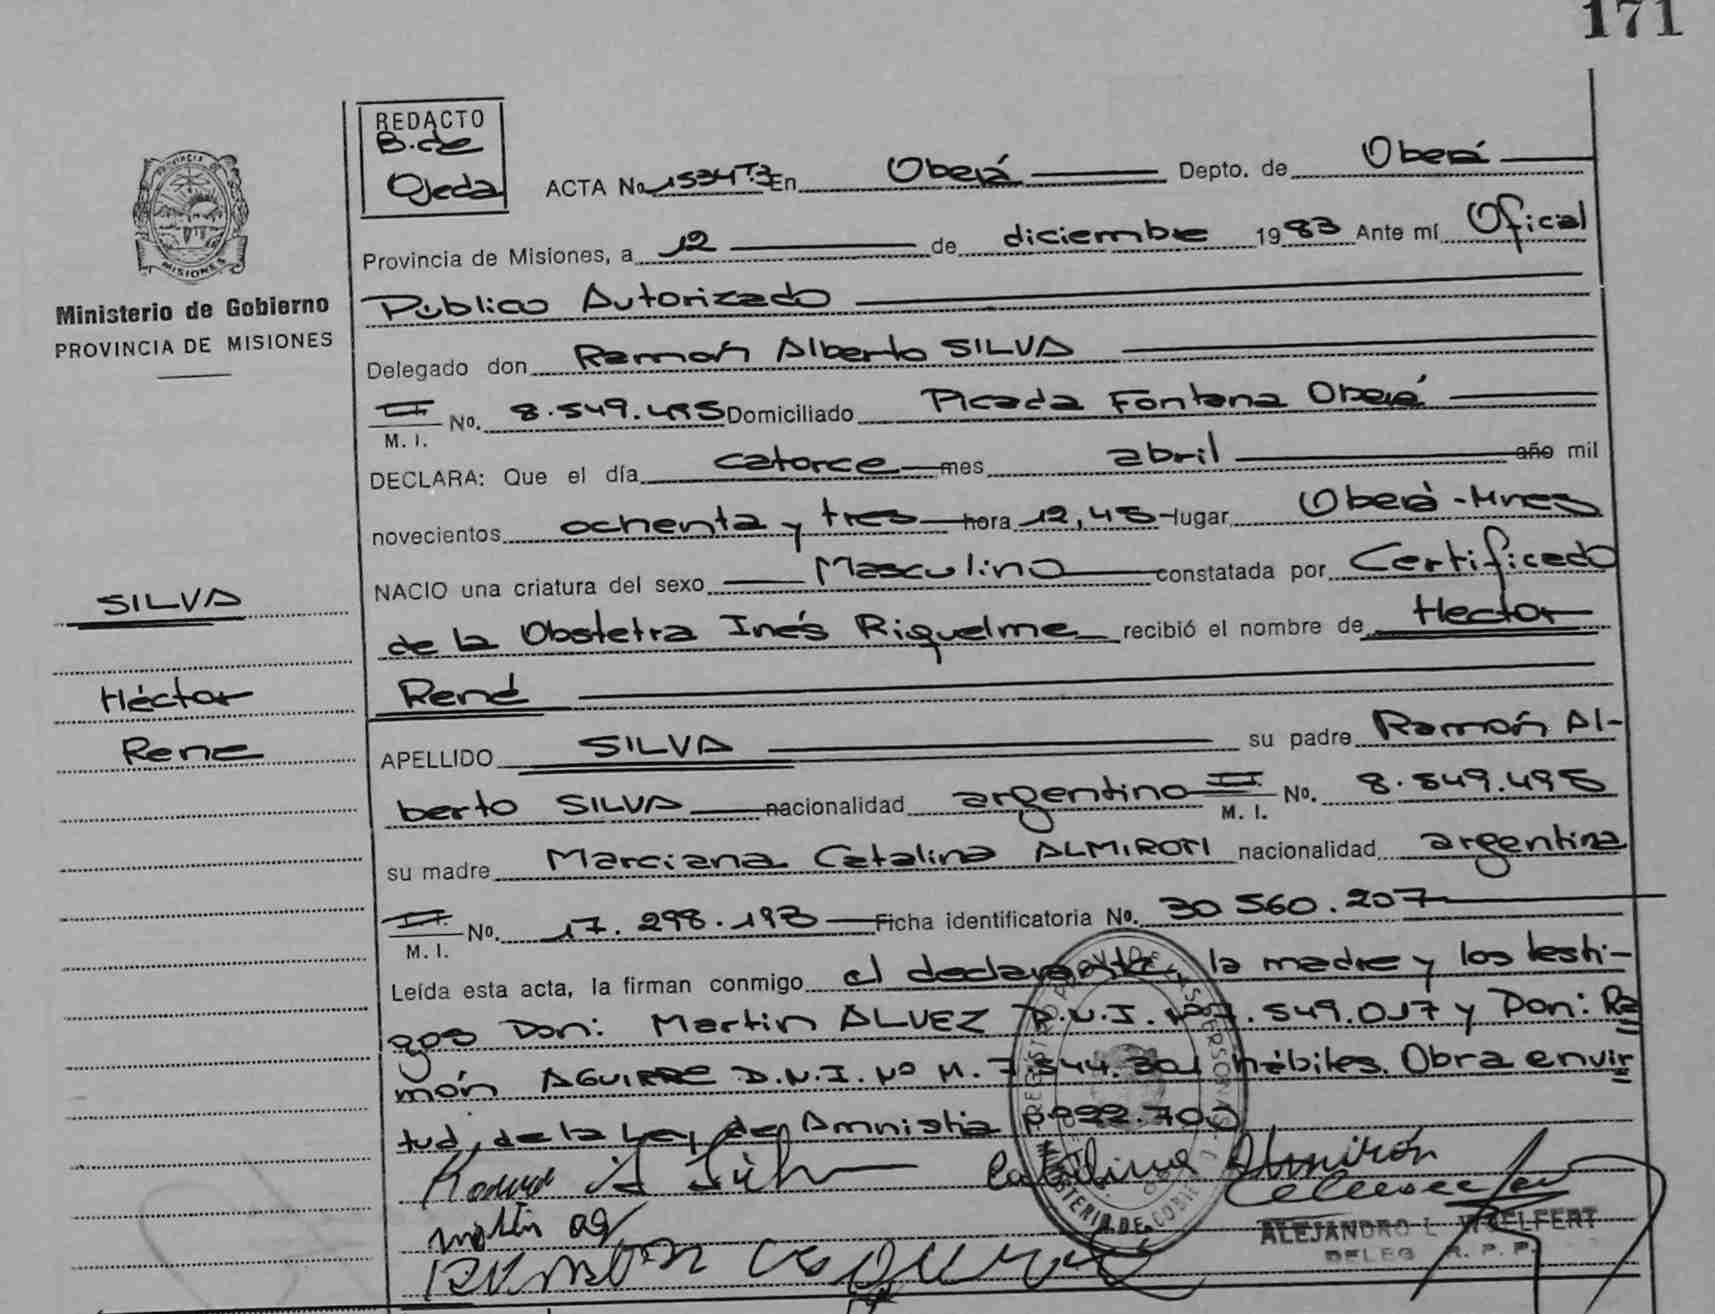 171
REDACTO
B. de
Ojeda
ACTA No 1534 T.3 En Oberá Depto. de Oberá
Provincia de Misiones, a 12 de diciembre 1983 Ante mí Oficial
Público Autorizado
Delegado don Ramón Alberto SILVA
M. I. No. 8.549.495 Domiciliado Picada Fontana Oberá
DECLARA: Que el día catorce mes abril año mil
novecientos ochenta y tres hora 12,45 lugar Oberá-Mnes
NACIO una criatura del sexo Masculino constatada por Certificado
de la Obstetra Inés Riquelme recibió el nombre de Hector
René
APELLIDO SILVA su padre Ramón Al-
berto SILVA nacionalidad argentino M. I. No. 8.549.495
su madre Marciana Catalina ALMIRON nacionalidad argentina
M. I. No. 17.298.193 Ficha identificatoria No. 30 560.207
Leída esta acta, la firman conmigo el declarante, la madre y los testi-
gos Don: Martin ALVEZ D.N.I. Nº 7.549.017 y Don: Ra
món AGUIRRE D.N.I. Nº M. 7.544.301 hábiles. Obra en vir
tud, de la Ley de Amnistia Nº 22.700
Catalina Almirón
ALEJANDRO L. WELFERT
DELEG. R. P. P.
Provincia de
MISIONES
Ministerio de Gobierno
PROVINCIA DE MISIONES
SILVA
Héctor
Rene